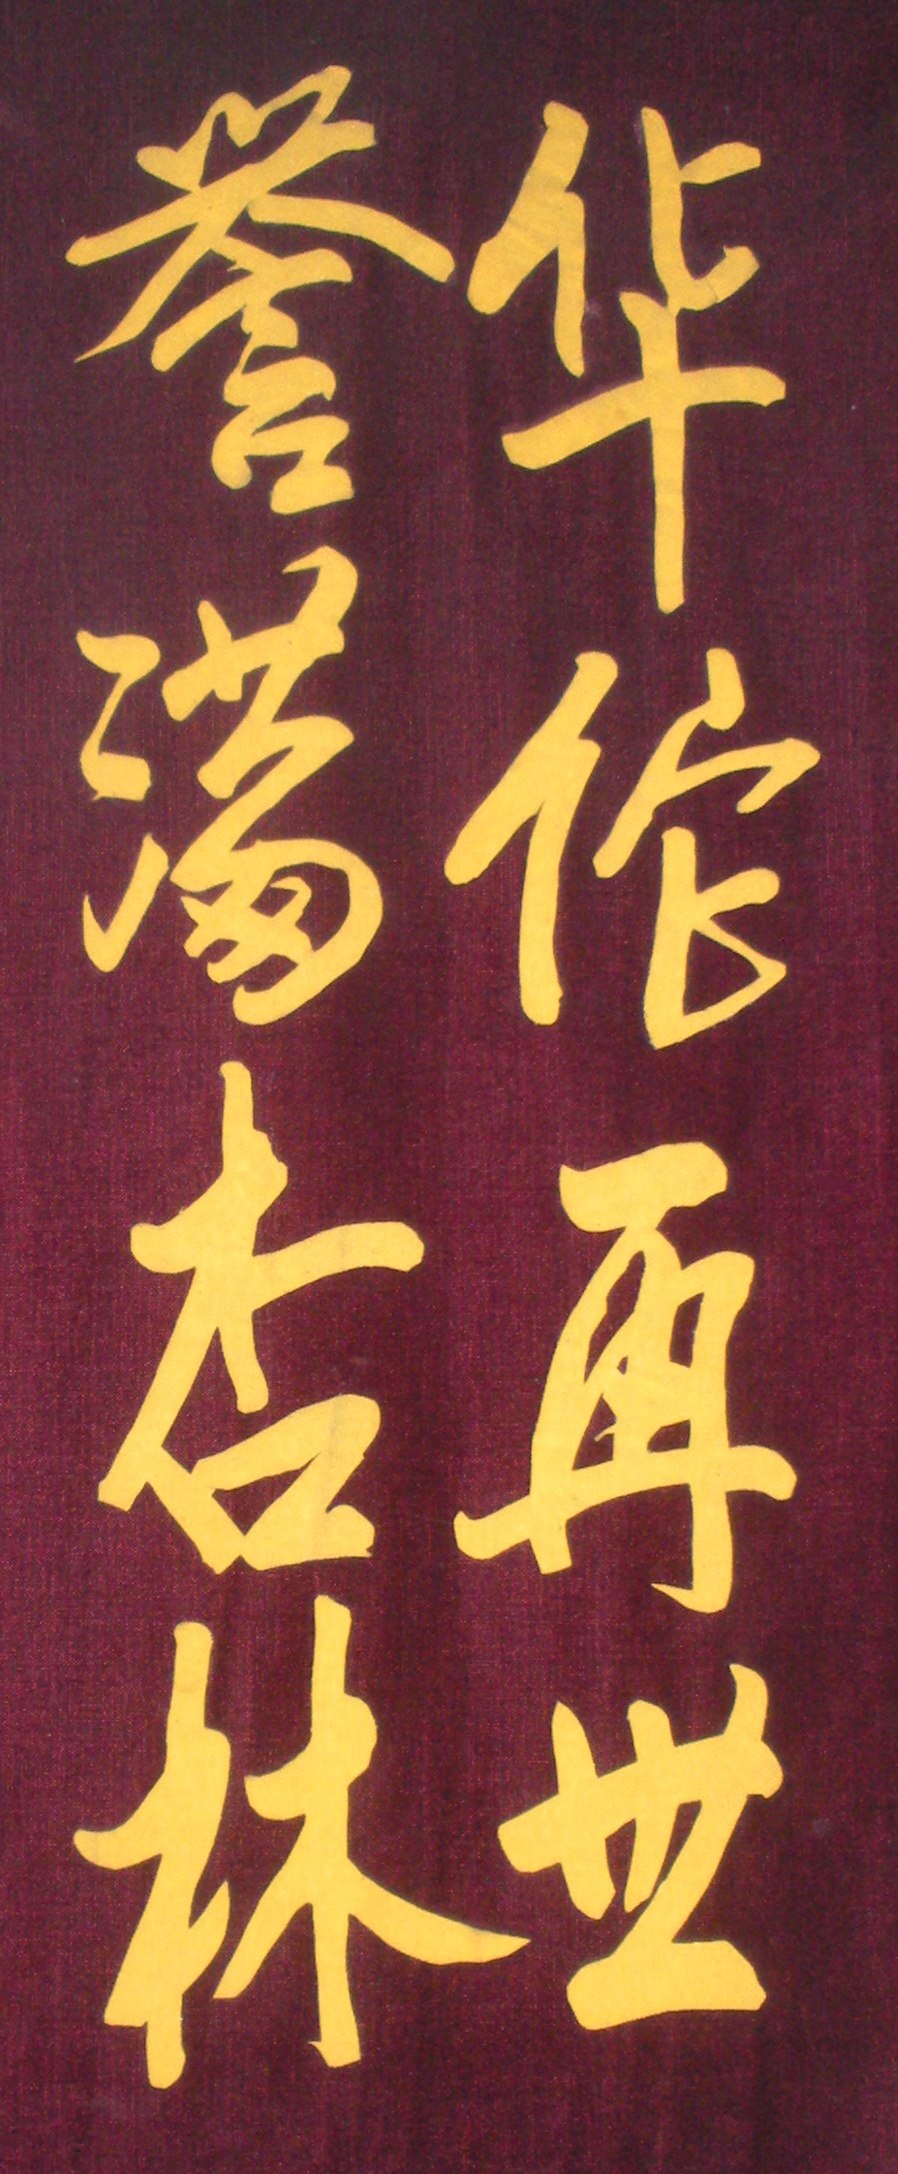 华佗再世
誉满杏林